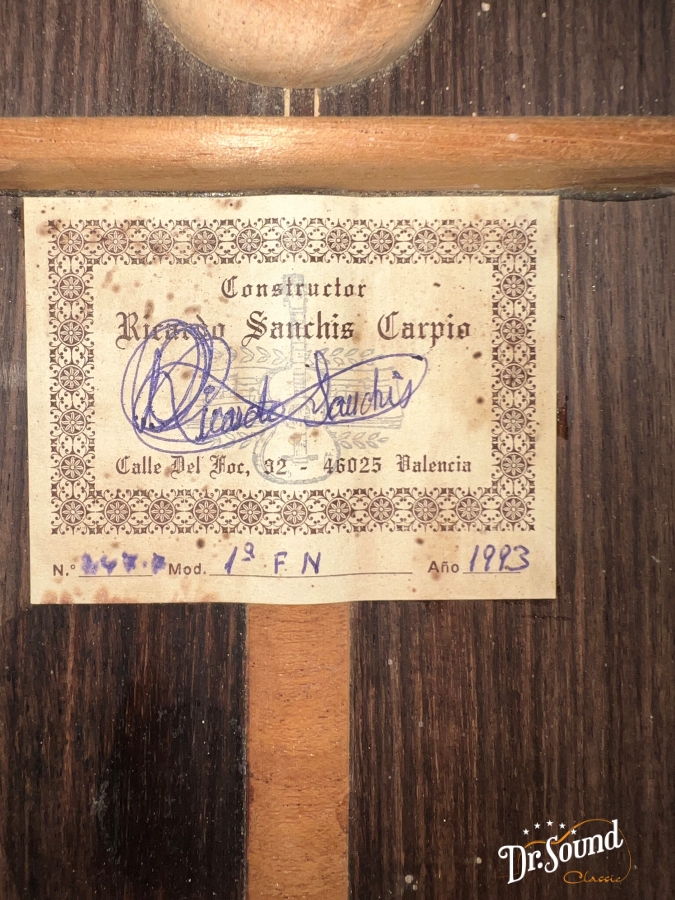 Constructor
Ricardo Sanchis Carpio
Ricardo Sanchis
Calle Del Foc, 32 - 46025 Valencia
N.º Mod. 1ª F N Año 1993
Dr. Sound
Classic